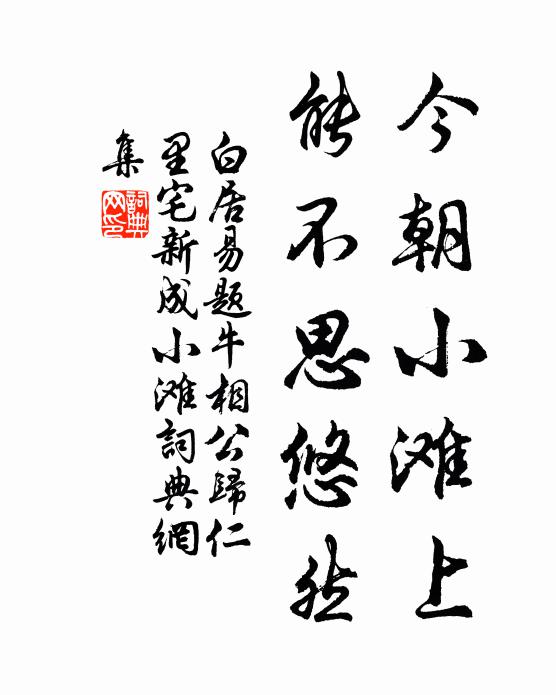 今朝小滩上
能不思悠然
白居易题牛相公歸仁
里宅新成小滩詞典網
集
詞典
网印